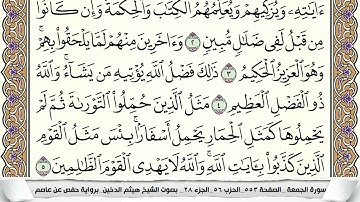 ءَايَـٰتِهِۦ وَيُزَكِّيهِمْ وَيُعَلِّمُهُمُ ٱلْكِتَـٰبَ وَٱلْحِكْمَةَ وَإِن كَانُوا۟
مِن قَبْلُ لَفِى ضَلَـٰلٍ مُّبِينٍ ٢ وَءَاخَرِينَ مِنْهُمْ لَمَّا يَلْحَقُوا۟ بِهِمْ ۚ
وَهُوَ ٱلْعَزِيزُ ٱلْحَكِيمُ ٣ ذَٰلِكَ فَضْلُ ٱللَّهِ يُؤْتِيهِ مَن يَشَآءُ ۚ وَٱللَّهُ
ذُو ٱلْفَضْلِ ٱلْعَظِيمِ ٤ مَثَلُ ٱلَّذِينَ حُمِّلُوا۟ ٱلتَّوْرَىٰةَ ثُمَّ لَمْ
يَحْمِلُوهَا كَمَثَلِ ٱلْحِمَارِ يَحْمِلُ أَسْفَارًۢا ۚ بِئْسَ مَثَلُ ٱلْقَوْمِ
ٱلَّذِينَ كَذَّبُوا۟ بِـَٔايَـٰتِ ٱللَّهِ ۚ وَٱللَّهُ لَا يَهْدِى ٱلْقَوْمَ ٱلظَّـٰلِمِينَ ٥
سورة الجمعة _الصفحة ٥٥٣_الحزب ٥٦_الجزء ٢٨_ بصوت الشيخ هيثم الدخين_برواية حفص عن عاصم